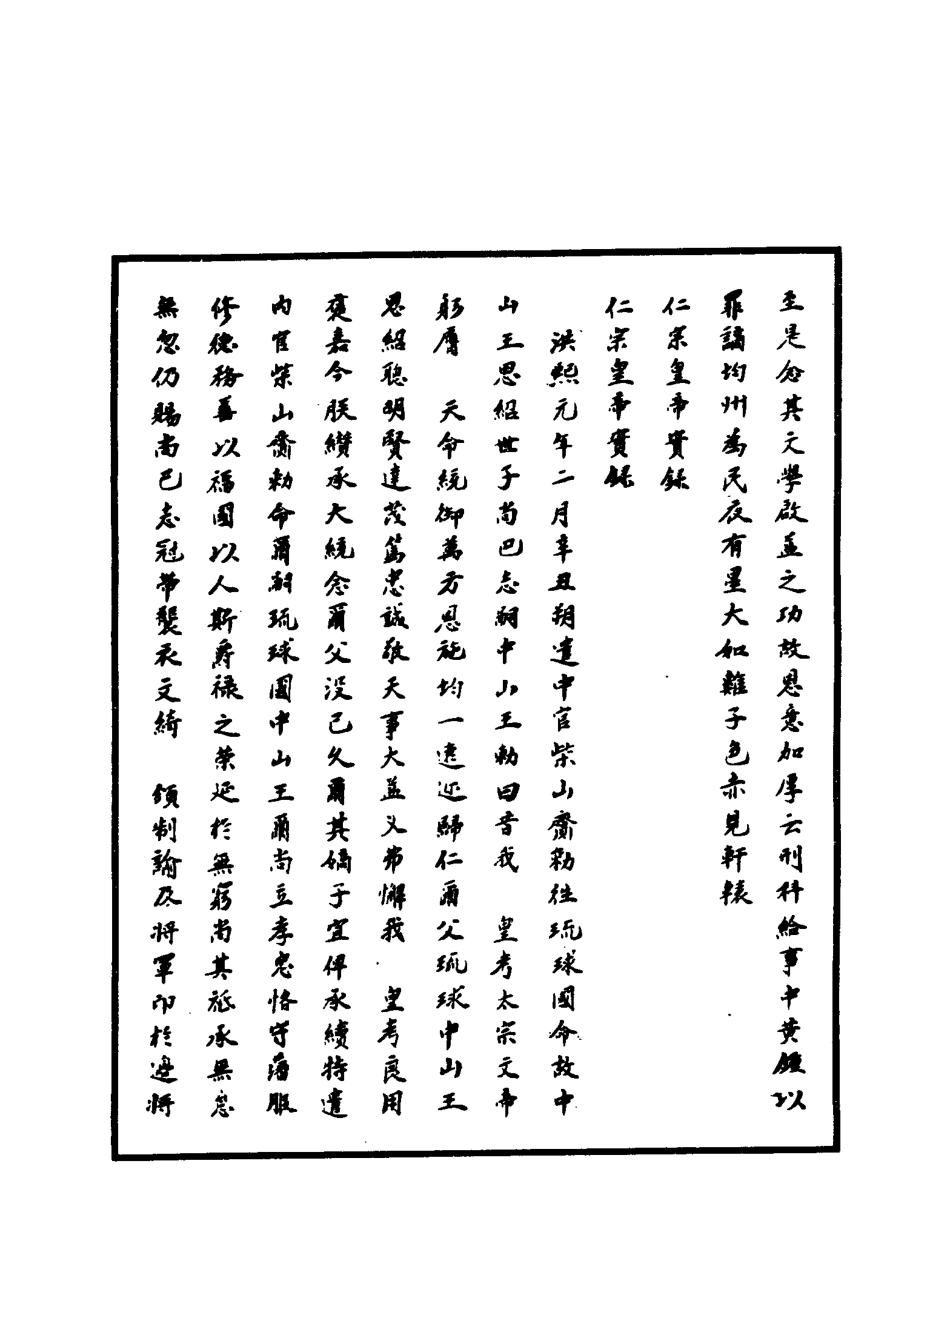 至是念其文學啟益之功故恩意加厚云刑科給事中黃鍾以
罪謫均州為民夜有星大如雞子色赤見軒轅
仁宗皇帝實錄
仁宗皇帝實録
洪熙元年二月辛丑朔遣中官柴山齎勑往琉球國命故中
山王思紹世子尚巴志嗣中山王勑曰昔我 皇考太宗文帝
躬膺 天命統御萬方恩施均一遠迩歸仁爾父琉球中山王
思紹聰明賢達茂篤忠誠敬天事大益乂弗懈我 皇考良用
褒嘉今朕纘承大統念爾父没已久爾其嫡子宜俾承續特遣
内官柴山齎勑命爾嗣琉球國中山王爾尚立孝忠恪守藩服
修德務善以福國以人斯爵禄之荣延於無窮尚其祗承無怠
無忽仍賜尚巴志冠帶襲衣文綺 頒制諭及将軍印於邊将